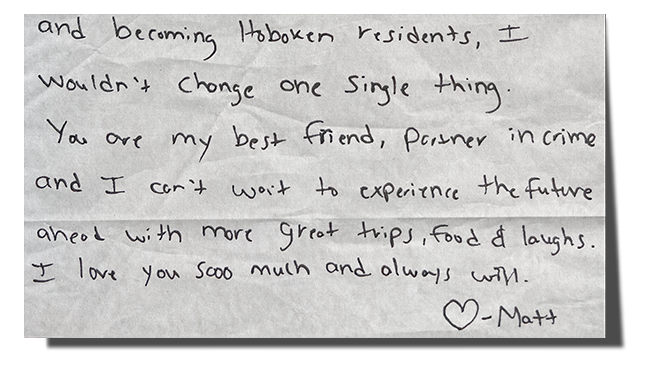 and becoming Hoboken residents, I
wouldn't change one single thing.
You are my best friend, partner in crime
and I can't wait to experience the future
ahead with more great trips, food & laughs.
I love you sooo much and always will.
♡-Matt